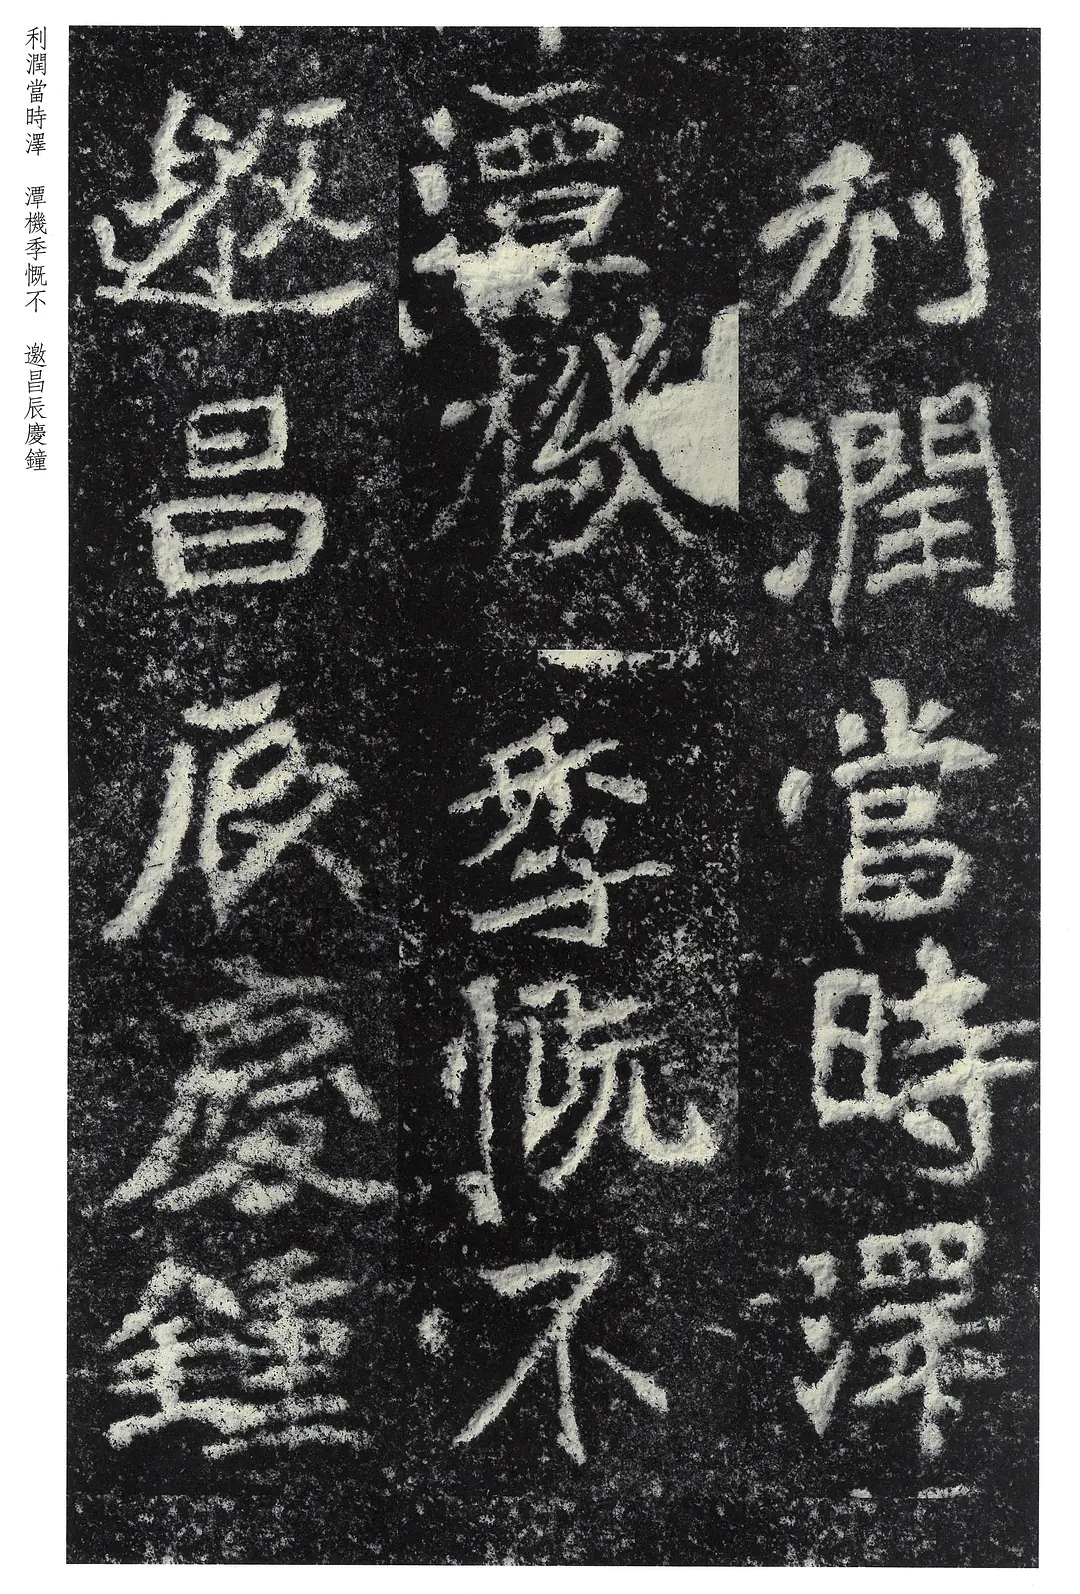 利潤當時澤
潭機季慨不
邀昌辰慶鐘
利潤當時澤 潭機季慨不 邀昌辰慶鐘